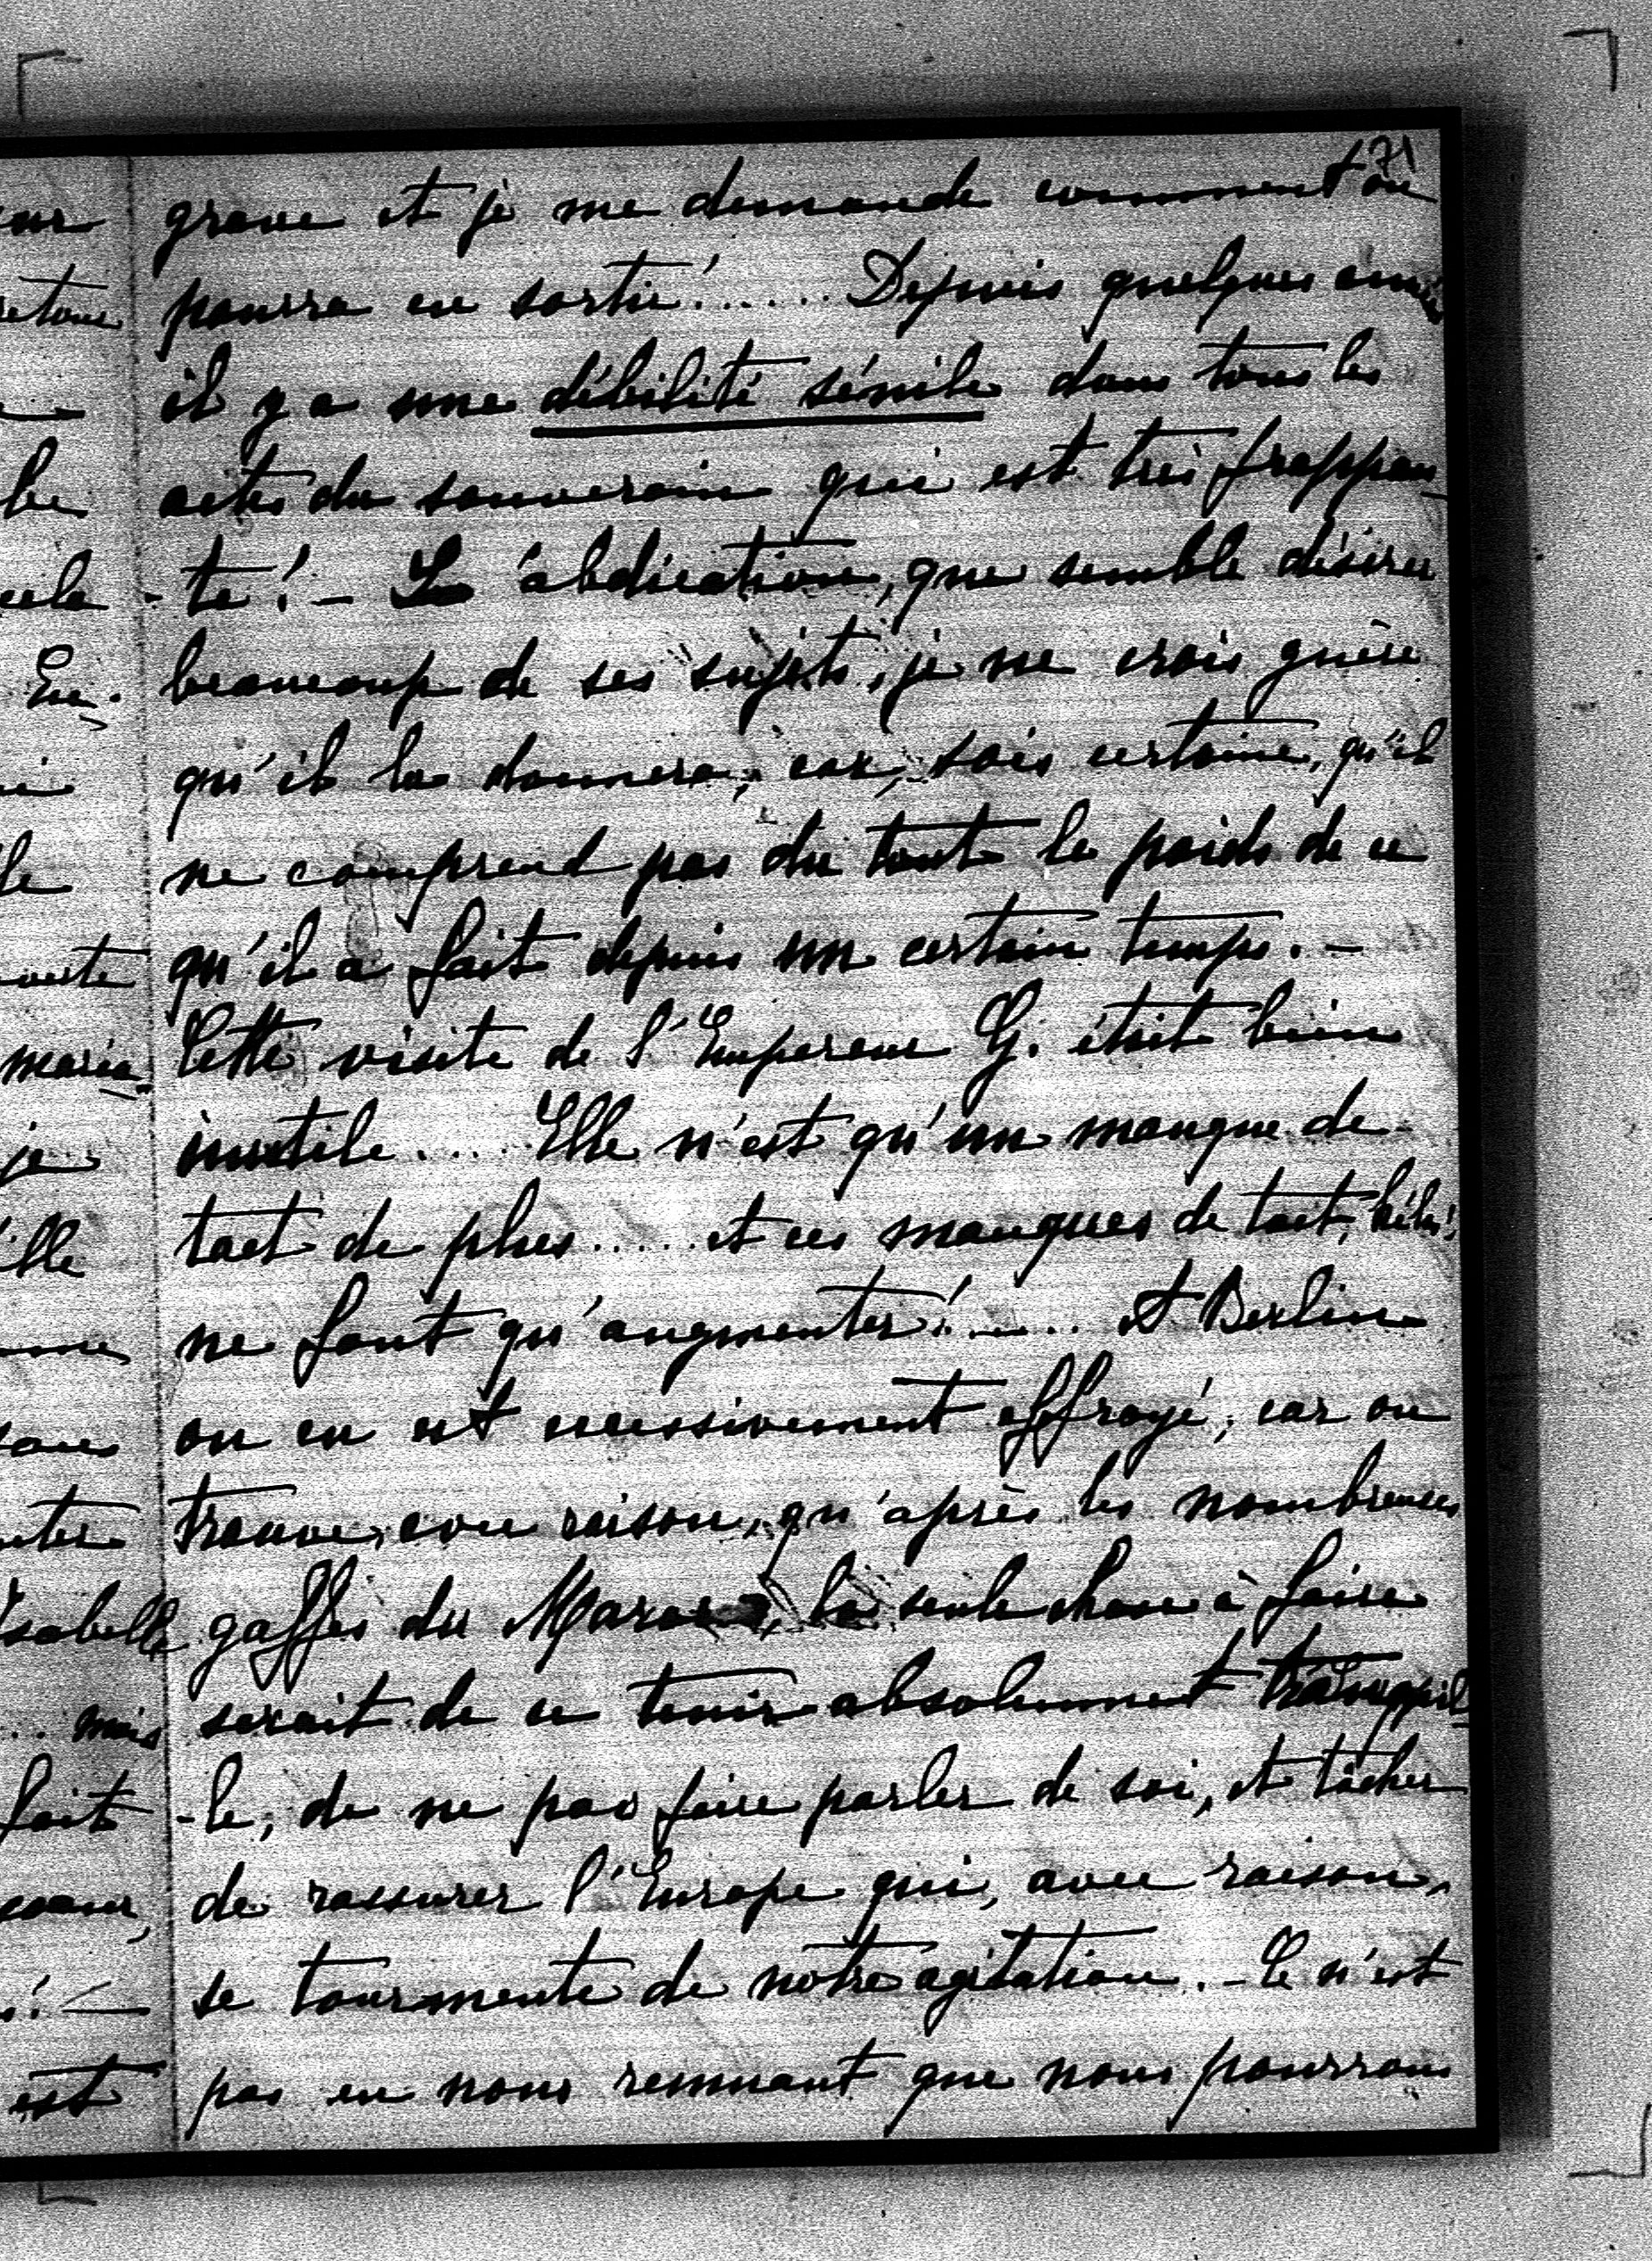 71
grave et je me demande comment on
pourra en sortir!...... Depuis quelques années
il y a une débilité sénile dans tous les
actes du souverain qui est très frappan-
-te! - L'abdication, que semble désirer
beaucoup de ses sujets, je ne crois guère
qu'il la donnera, car, sois certaine, qu'il
ne comprend pas du tout le poids de ce
qu'il a fait depuis un certain temps. -
Cette visite de l'Empereur G. était bien
inutile.... Elle n'est qu'un manque de
tact de plus..... et ces manques de tact, hélas!
ne font qu'augmenter!...... A Berlin
on en est excessivement effrayé, car on
trouve, avec raison, qu'après les nombreuses
gaffes du Maroc, la seule chose à faire
serait de se tenir absolument tranquil-
-le, de ne pas faire parler de soi, et tâcher
de rassurer l'Europe qui, avec raison,
se tourmente de notre agitation. - Ce n'est
pas en nous remuant que nous pourrons